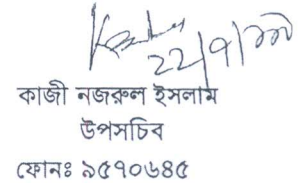 কাজী নজরুল ইসলাম
উপসচিব
ফোনঃ ৯৫৭০৬৪৫